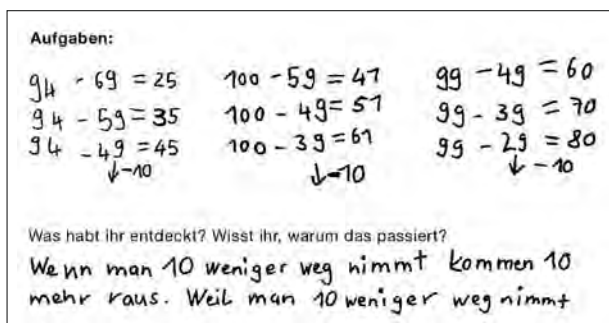 Aufgaben:
94 - 69 = 25   100 - 59 = 41   99 - 49 = 60
94 - 59 = 35   100 - 49 = 51   99 - 39 = 70
94 - 49 = 45   100 - 39 = 61   99 - 29 = 80
↓-10   ↓-10   ↓-10
Was habt ihr entdeckt? Wisst ihr, warum das passiert?
Wenn man 10 weniger weg nimmt kommen 10
mehr raus. Weil man 10 weniger weg nimmt